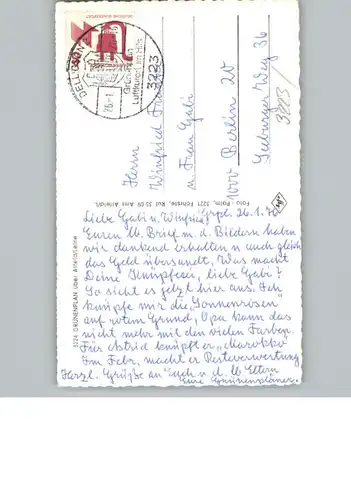 DELLIGSEN
26.-1.
3223
Grünenplan
Luftkurort im Hils
Herrn
Winfried
u. Frau Gabi
1000 Berlin 20
Seeburger Weg 36
3223/
5224 GRÜNENPLAN über Alfeld/Leine
Foto - Palm, 3221 Föhrste, Ruf 35 09 Amt Alfeld/L.
Grpl. 26.1.76
Liebe Gabi u. Winfried,
Euren lb. Brief m. d. Bildern haben
wir dankend erhalten u. auch gleich
das Geld übersandt. Was macht
Deine Knüpferei, liebe Gabi?
So sieht es jetzt hier aus. Ich
knüpfe mir die "Sonnenrosen"
auf rotem Grund, Opa kann das
nicht mehr mit den vielen Farben.
Für Astrid knüpft er "Marokko"
Im Febr. macht er Resteverwertung
Herzl. Grüße an Euch u. d. lb. Eltern
Eure Grünenplaner